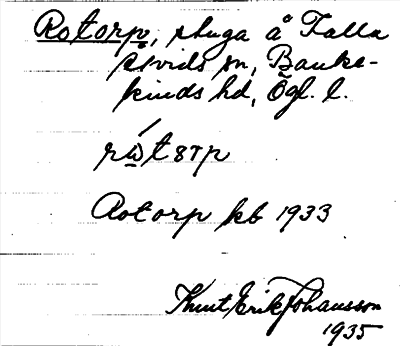 Rotorp, stuga å Falla
Arvids sn, Banke-
kinds hd, Ögl. l.
Rotorp kb 1933
Knut Erik Johansson
1935